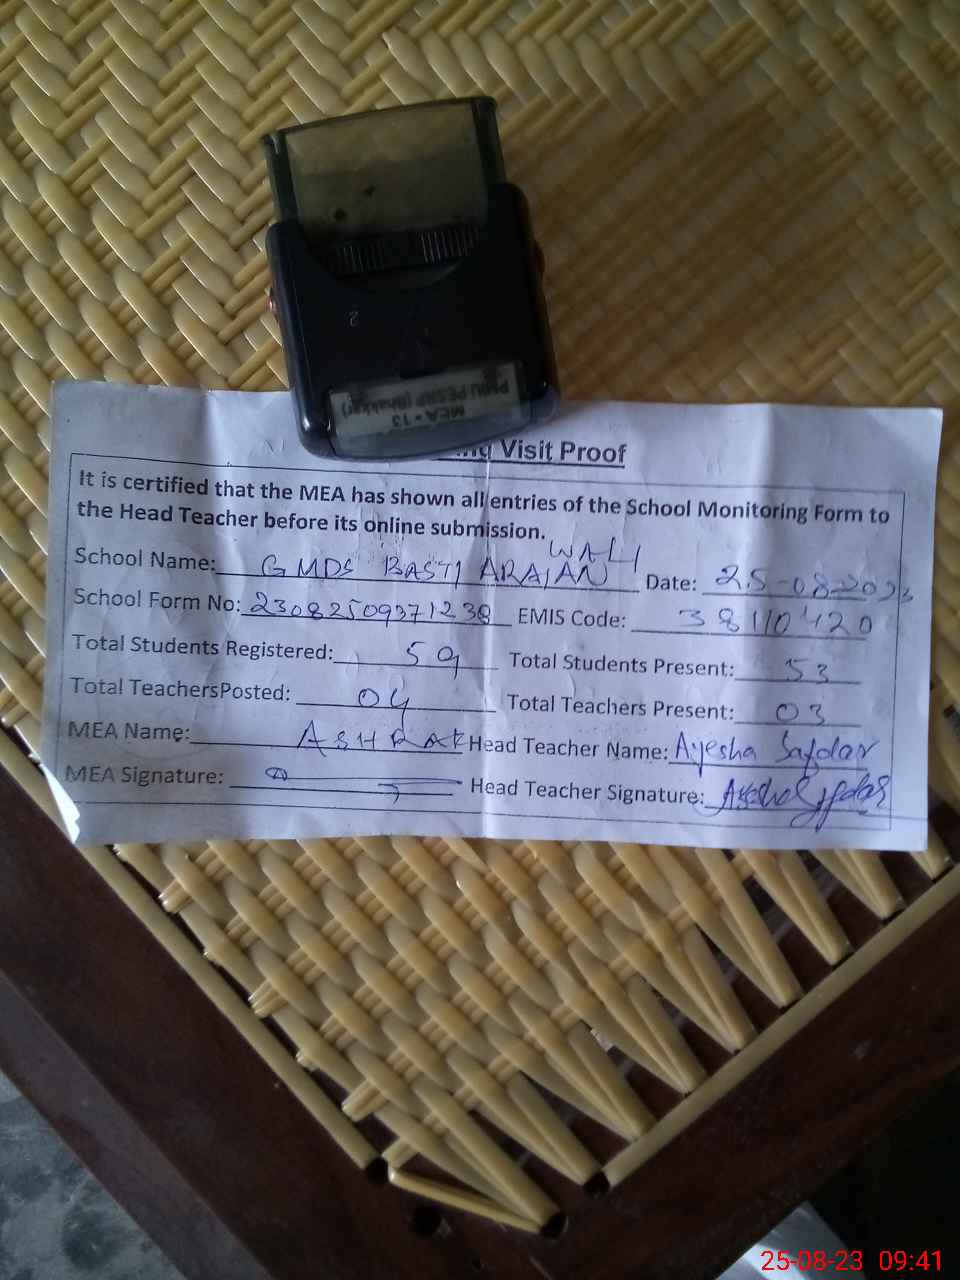 2
MEA - 13
PMIU PESRP (Bhakkar)
Visit Proof
It is certified that the MEA has shown all entries of the School Monitoring Form to
the Head Teacher before its online submission.
School Name: GMDS BASTI ARAIAN WALI Date: 25-08-2023
School Form No: 23082509371238 EMIS Code: 38110420
Total Students Registered: 59 Total Students Present: 53
Total TeachersPosted: 04 Total Teachers Present: 03
MEA Name: ASHRAF Head Teacher Name: Ayesha Safdar
MEA Signature: Head Teacher Signature: Ayesha Safdar
25-08-23 09:41